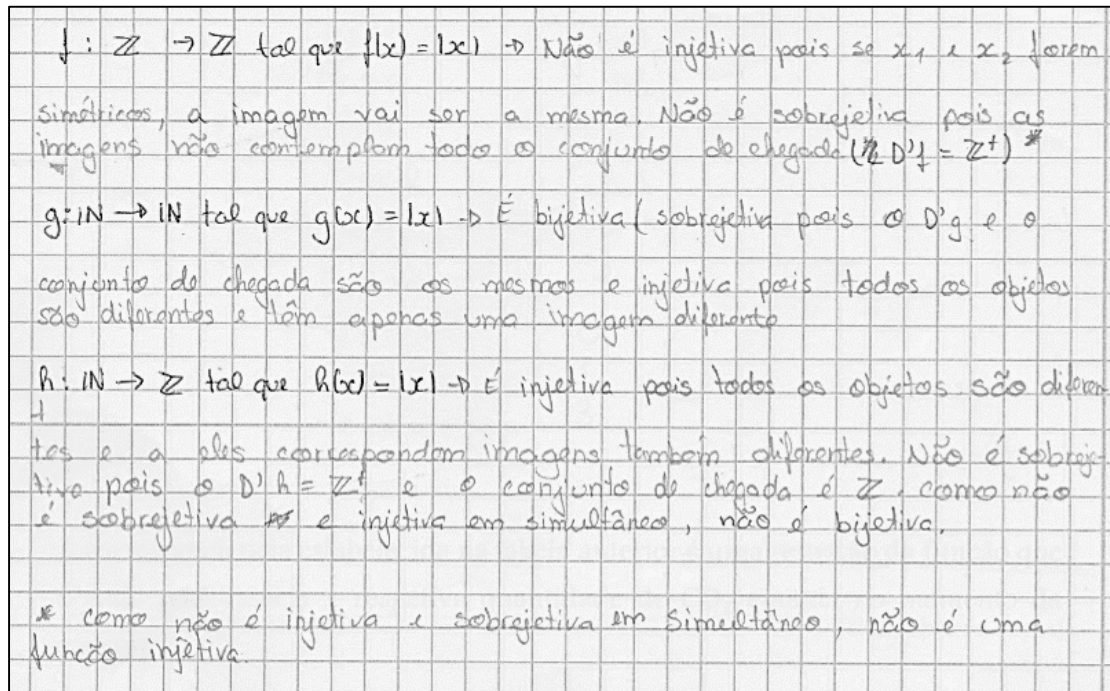 f: ℤ → ℤ tal que f(x) = |x| → Não é injetiva pois se x₁ e x₂ forem
simétricos, a imagem vai ser a mesma. Não é sobrejetiva pois as
imagens não contemplam todo o conjunto de chegada (D'f = ℤ⁺) *
g: ℕ → ℕ tal que g(x) = |x| → É bijetiva (sobrejetiva pois o D'g e o
conjunto de chegada são os mesmos e injetiva pois todos os objetos
são diferentes e têm apenas uma imagem diferente
h: ℕ → ℤ tal que h(x) = |x| → É injetiva pois todos os objetos são diferen
tes e a eles correspondem imagens também diferentes. Não é sobreje-
tiva pois o D'h = ℤ⁺ e o conjunto de chegada é ℤ. como não
é sobrejetiva e injetiva em simultâneo, não é bijetiva.
* como não é injetiva e sobrejetiva em simultâneo, não é uma
função injetiva.